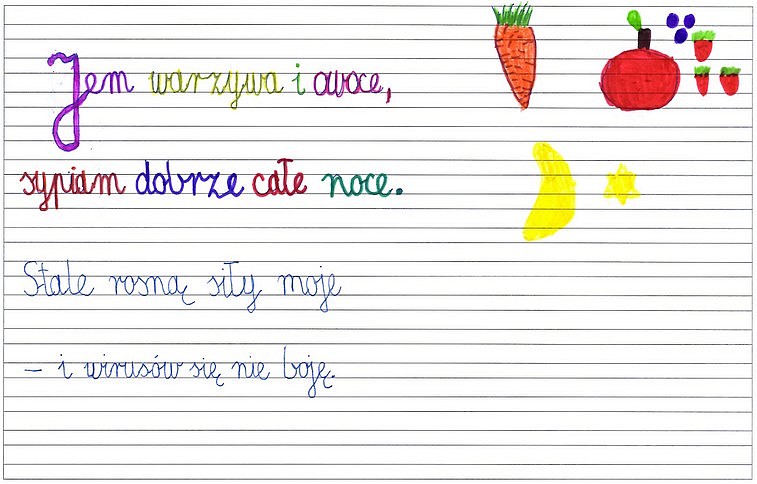 Jem warzywa i owoce,
sypiam dobrze całe noce.
Stale rosną siły moje
– i wirusów się nie boję.